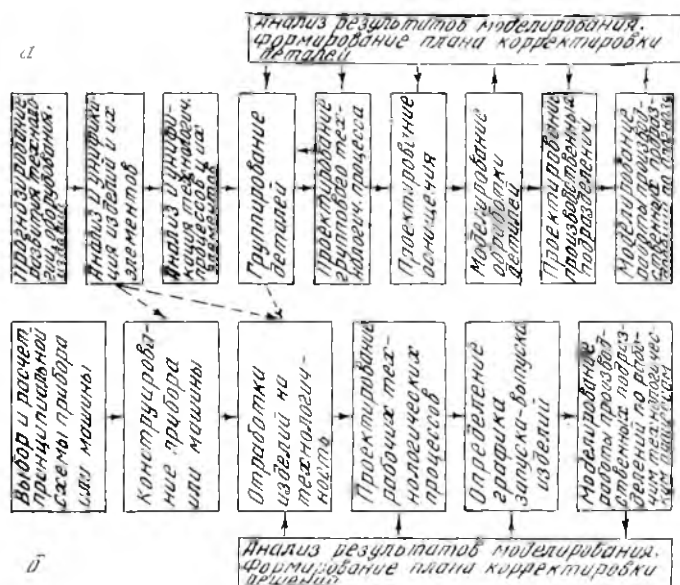 Анализ результатов моделирования.
Формирование плана корректировки
деталей
а
Прогнозирование
развития техноло-
гии, оборудования,
Анализ и унифика-
ция изделий и их
элементов
Анализ и унифи-
кация технологич.
процессов и их
элементов
Группирование
деталей
Проектирование
группового тех-
нологич. процесса
Проектирование
оснащения
Моделирование
обработки
деталей
Проектирование
производственных
подразделений
Моделирование
работы производ-
ственных подраз-
Выбор и расчет
принципиальной
схемы прибора
или машины
Конструирова-
ние прибора
или машины
Отработка
изделий на
технологич-
ность
Проектирование
рабочих тех-
нологических
процессов
Определение
графика
запуска-выпуска
изделий
Моделирование
работы производ-
ственных подраз-
делений по рабо-
чим технологичес-
ким процессам
б
Анализ результатов моделирования.
Формирование плана корректировки
решений